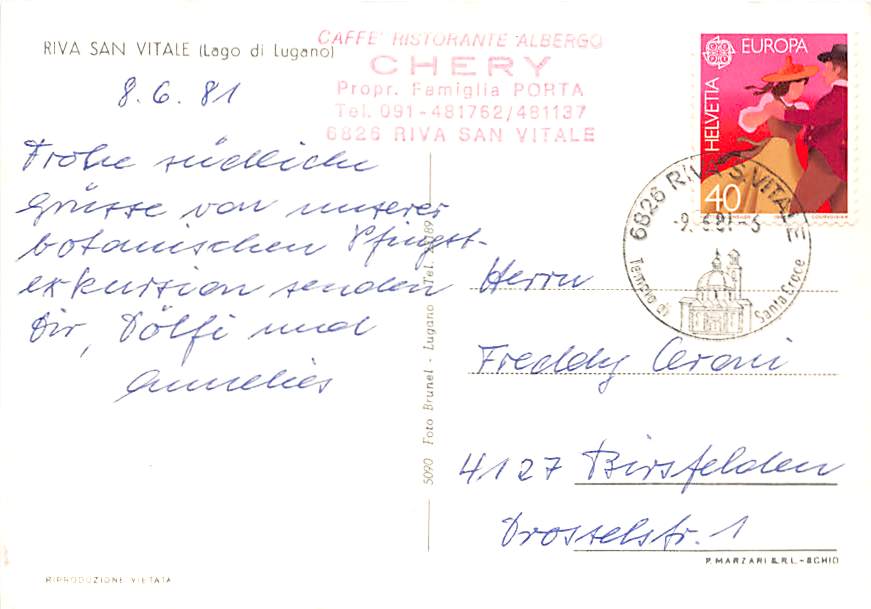 RIVA SAN VITALE (Lago di Lugano)
CAFFE' RISTORANTE ALBERGO
CHERY
Propr. Famiglia PORTA
Tel. 091-481762/481137
6826 RIVA SAN VITALE
8.6.81
Frohe südliche
Grüsse von unserer
botanischen Pfingst-
exkursion senden
Dir, Dölfi und
Annelies
EUROPA
HELVETIA
40
6826 RIVA S. VITALE
Tempio di Santa Croce
Herrn
Freddy Ceroni
4127 Birsfelden
Drosselstr. 1
5090 Foto Brunel - Lugano
P. MARZARI S.R.L. - SCHIO
RIPRODUZIONE VIETATA